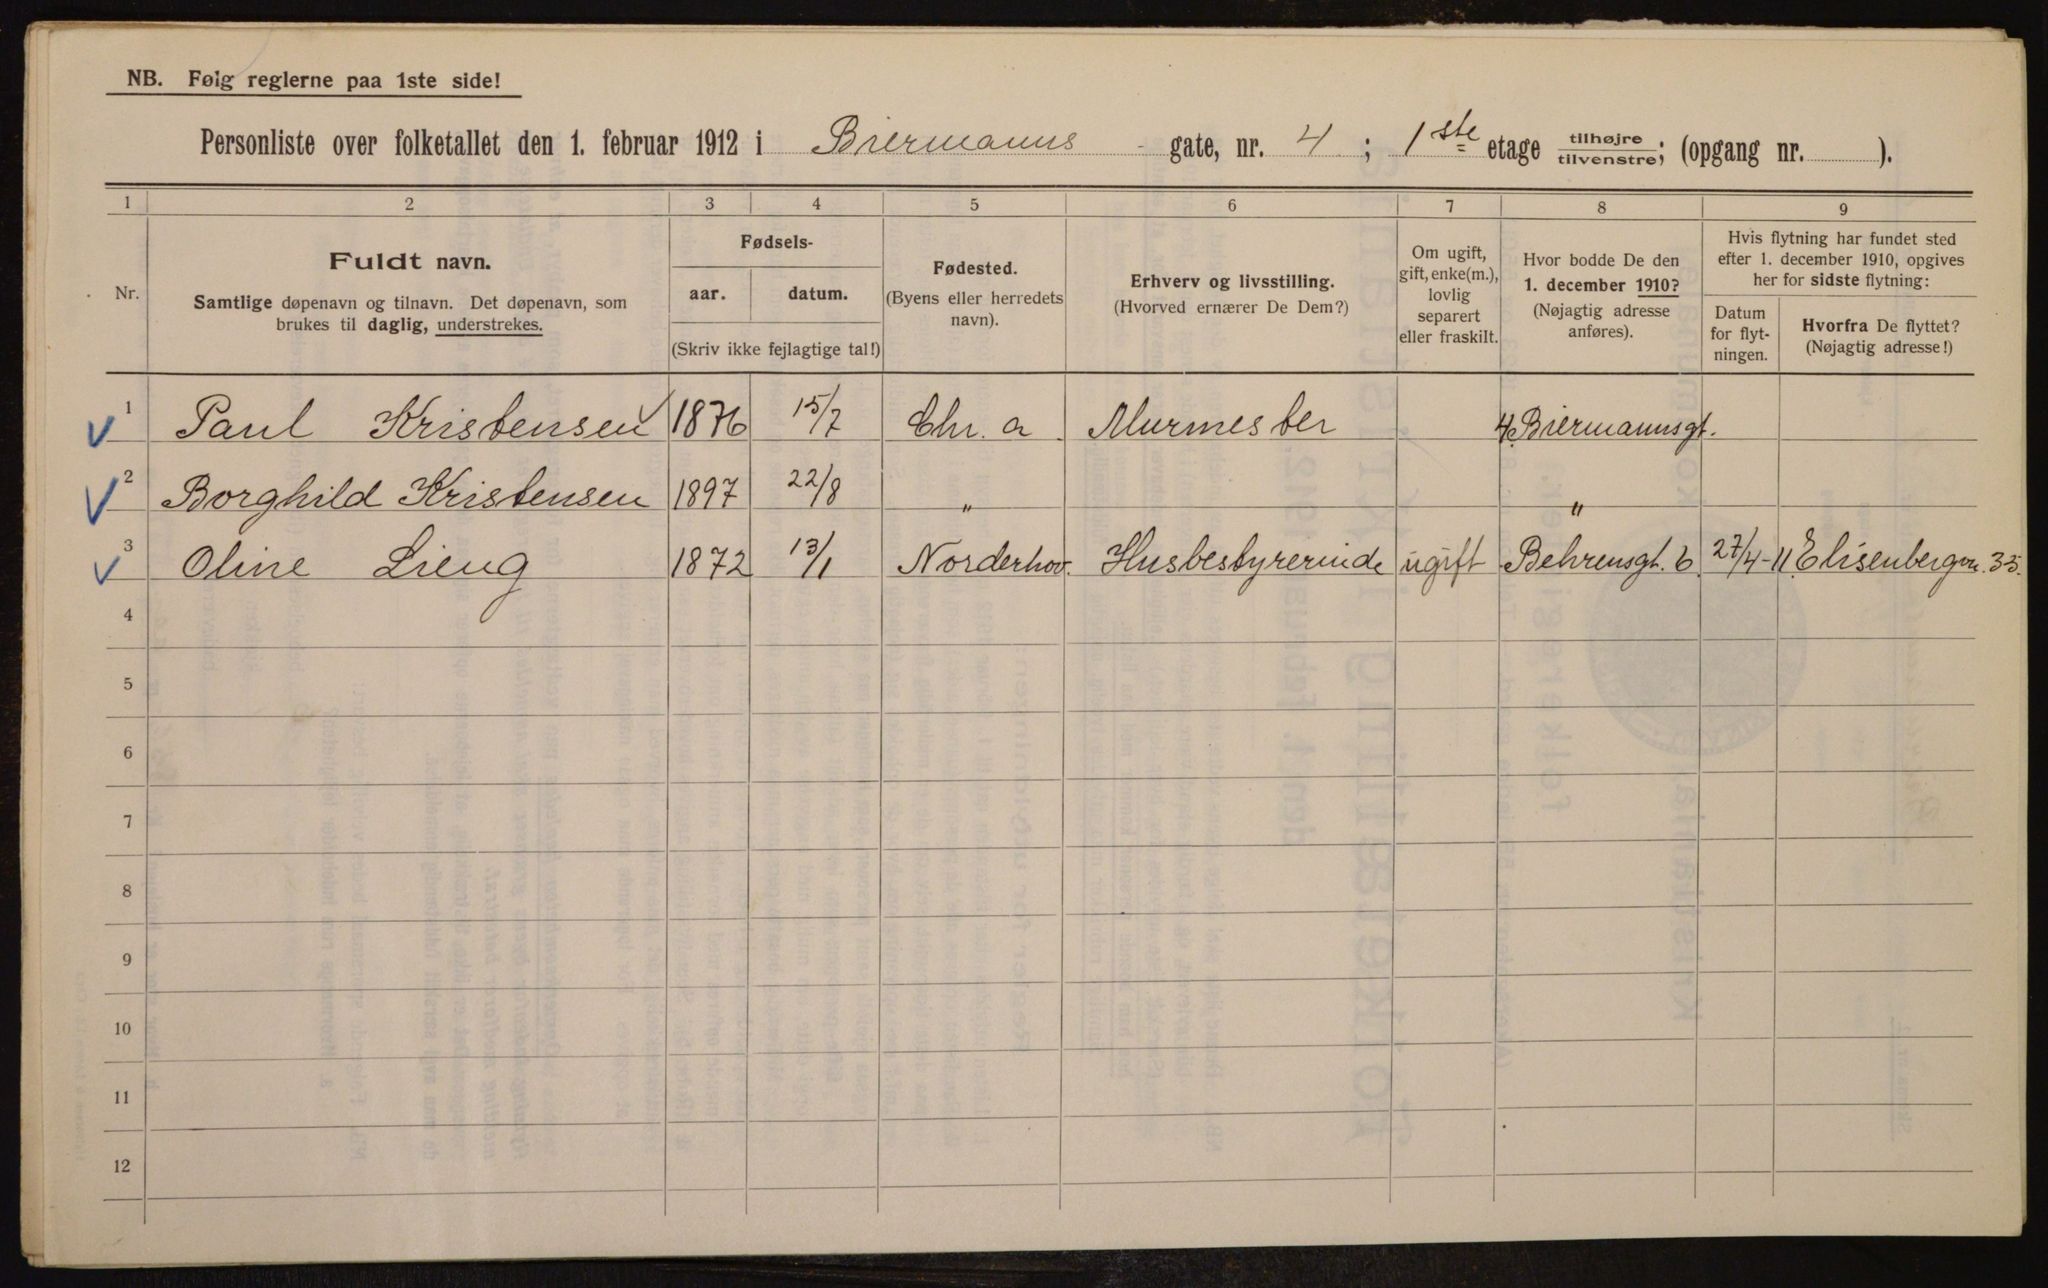 NB. Følg reglerne paa 1ste side!
Personliste over folketallet den 1. februar 1912 i Biermanns gate, nr. 4 ; 1ste etage tilhøjre/tilvenstre; (opgang nr. ).
1 2 3 4 5 6 7 8 9
Nr.
Fuldt navn.
Samtlige døpenavn og tilnavn. Det døpenavn, som
brukes til daglig, understrekes.
Fødsels-
aar. datum.
(Skriv ikke fejlagtige tal!)
Fødested.
(Byens eller herredets
navn).
Erhverv og livsstilling.
(Hvorved ernærer De Dem?)
Om ugift,
gift, enke(m.),
lovlig
separert
eller fraskilt.
Hvor bodde De den
1. december 1910?
(Nøjagtig adresse
anføres).
Hvis flytning har fundet sted
efter 1. december 1910, opgives
her for sidste flytning:
Datum
for flyt-
ningen.
Hvorfra De flyttet?
(Nøjagtig adresse!)
1 Paul Kristensen 1876 15/7 Chr. a Murmester 4 Biermannsgt.
2 Borghild Kristensen 1897 22/8 " "
3 Oline Lieng 1872 13/1 Norderhov. Husbestyrerinde ugift Behrensgt. 6 27/4-11 Elisenbergvn. 35.
4
5
6
7
8
9
10
11
12